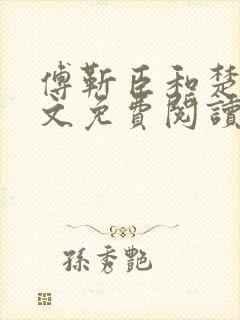 傅靳臣和楚
文免費閱讀
孫秀艷